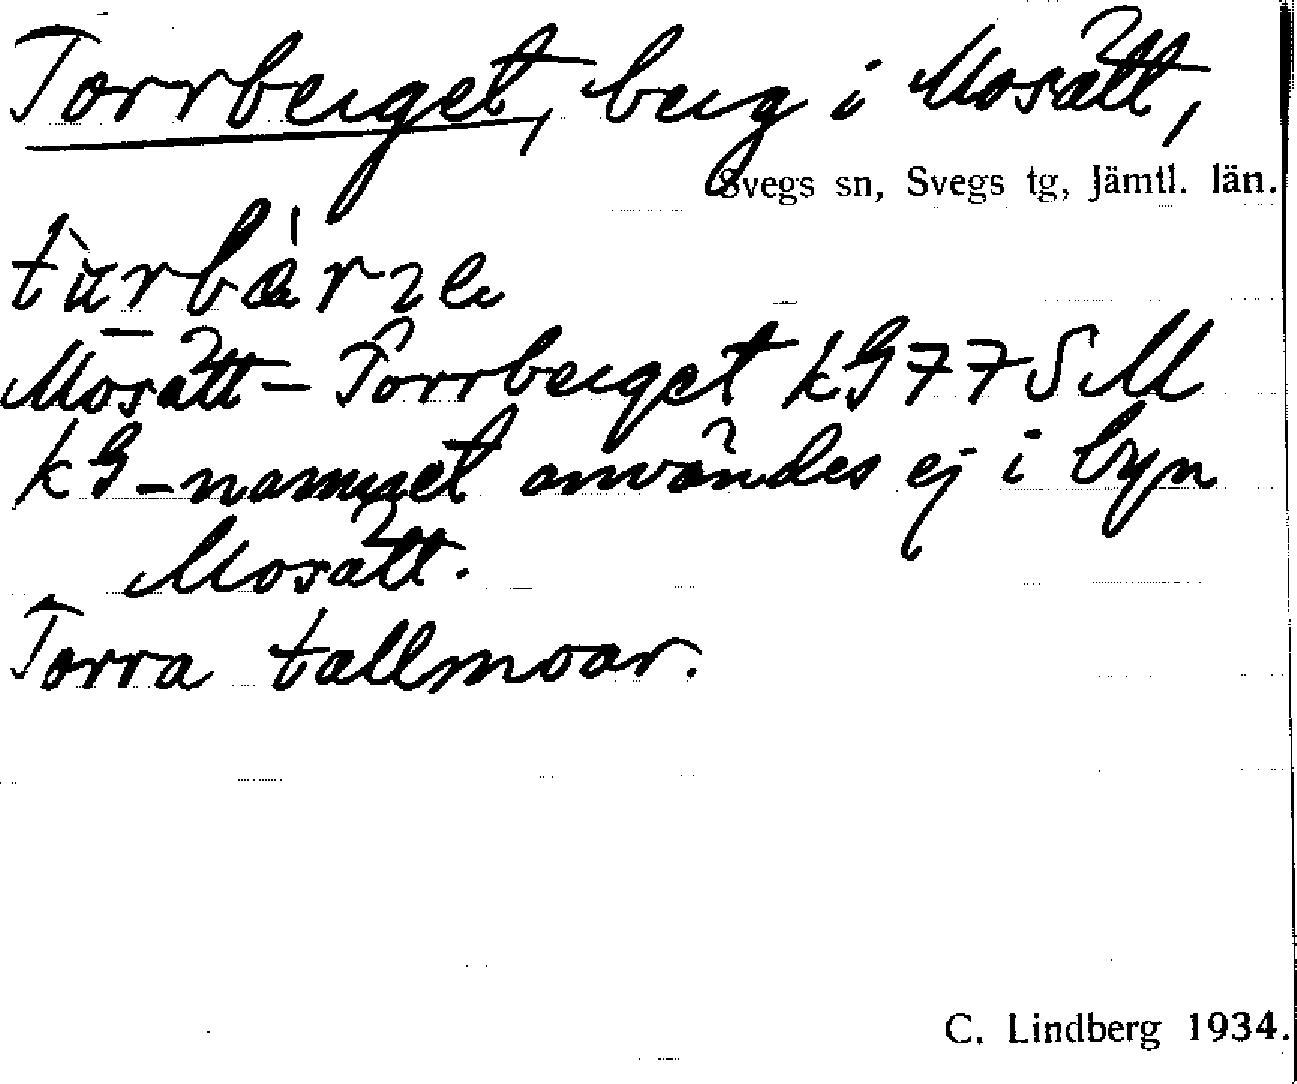 Torrberget, berg i Mosätt,
Svegs sn, Svegs tg, Jämtl. län.
Mosätt - Torrberget kG 77 SM
kG-namnet användes ej i byn
Mosätt.
Torra tallmoar.
C. Lindberg 1934.